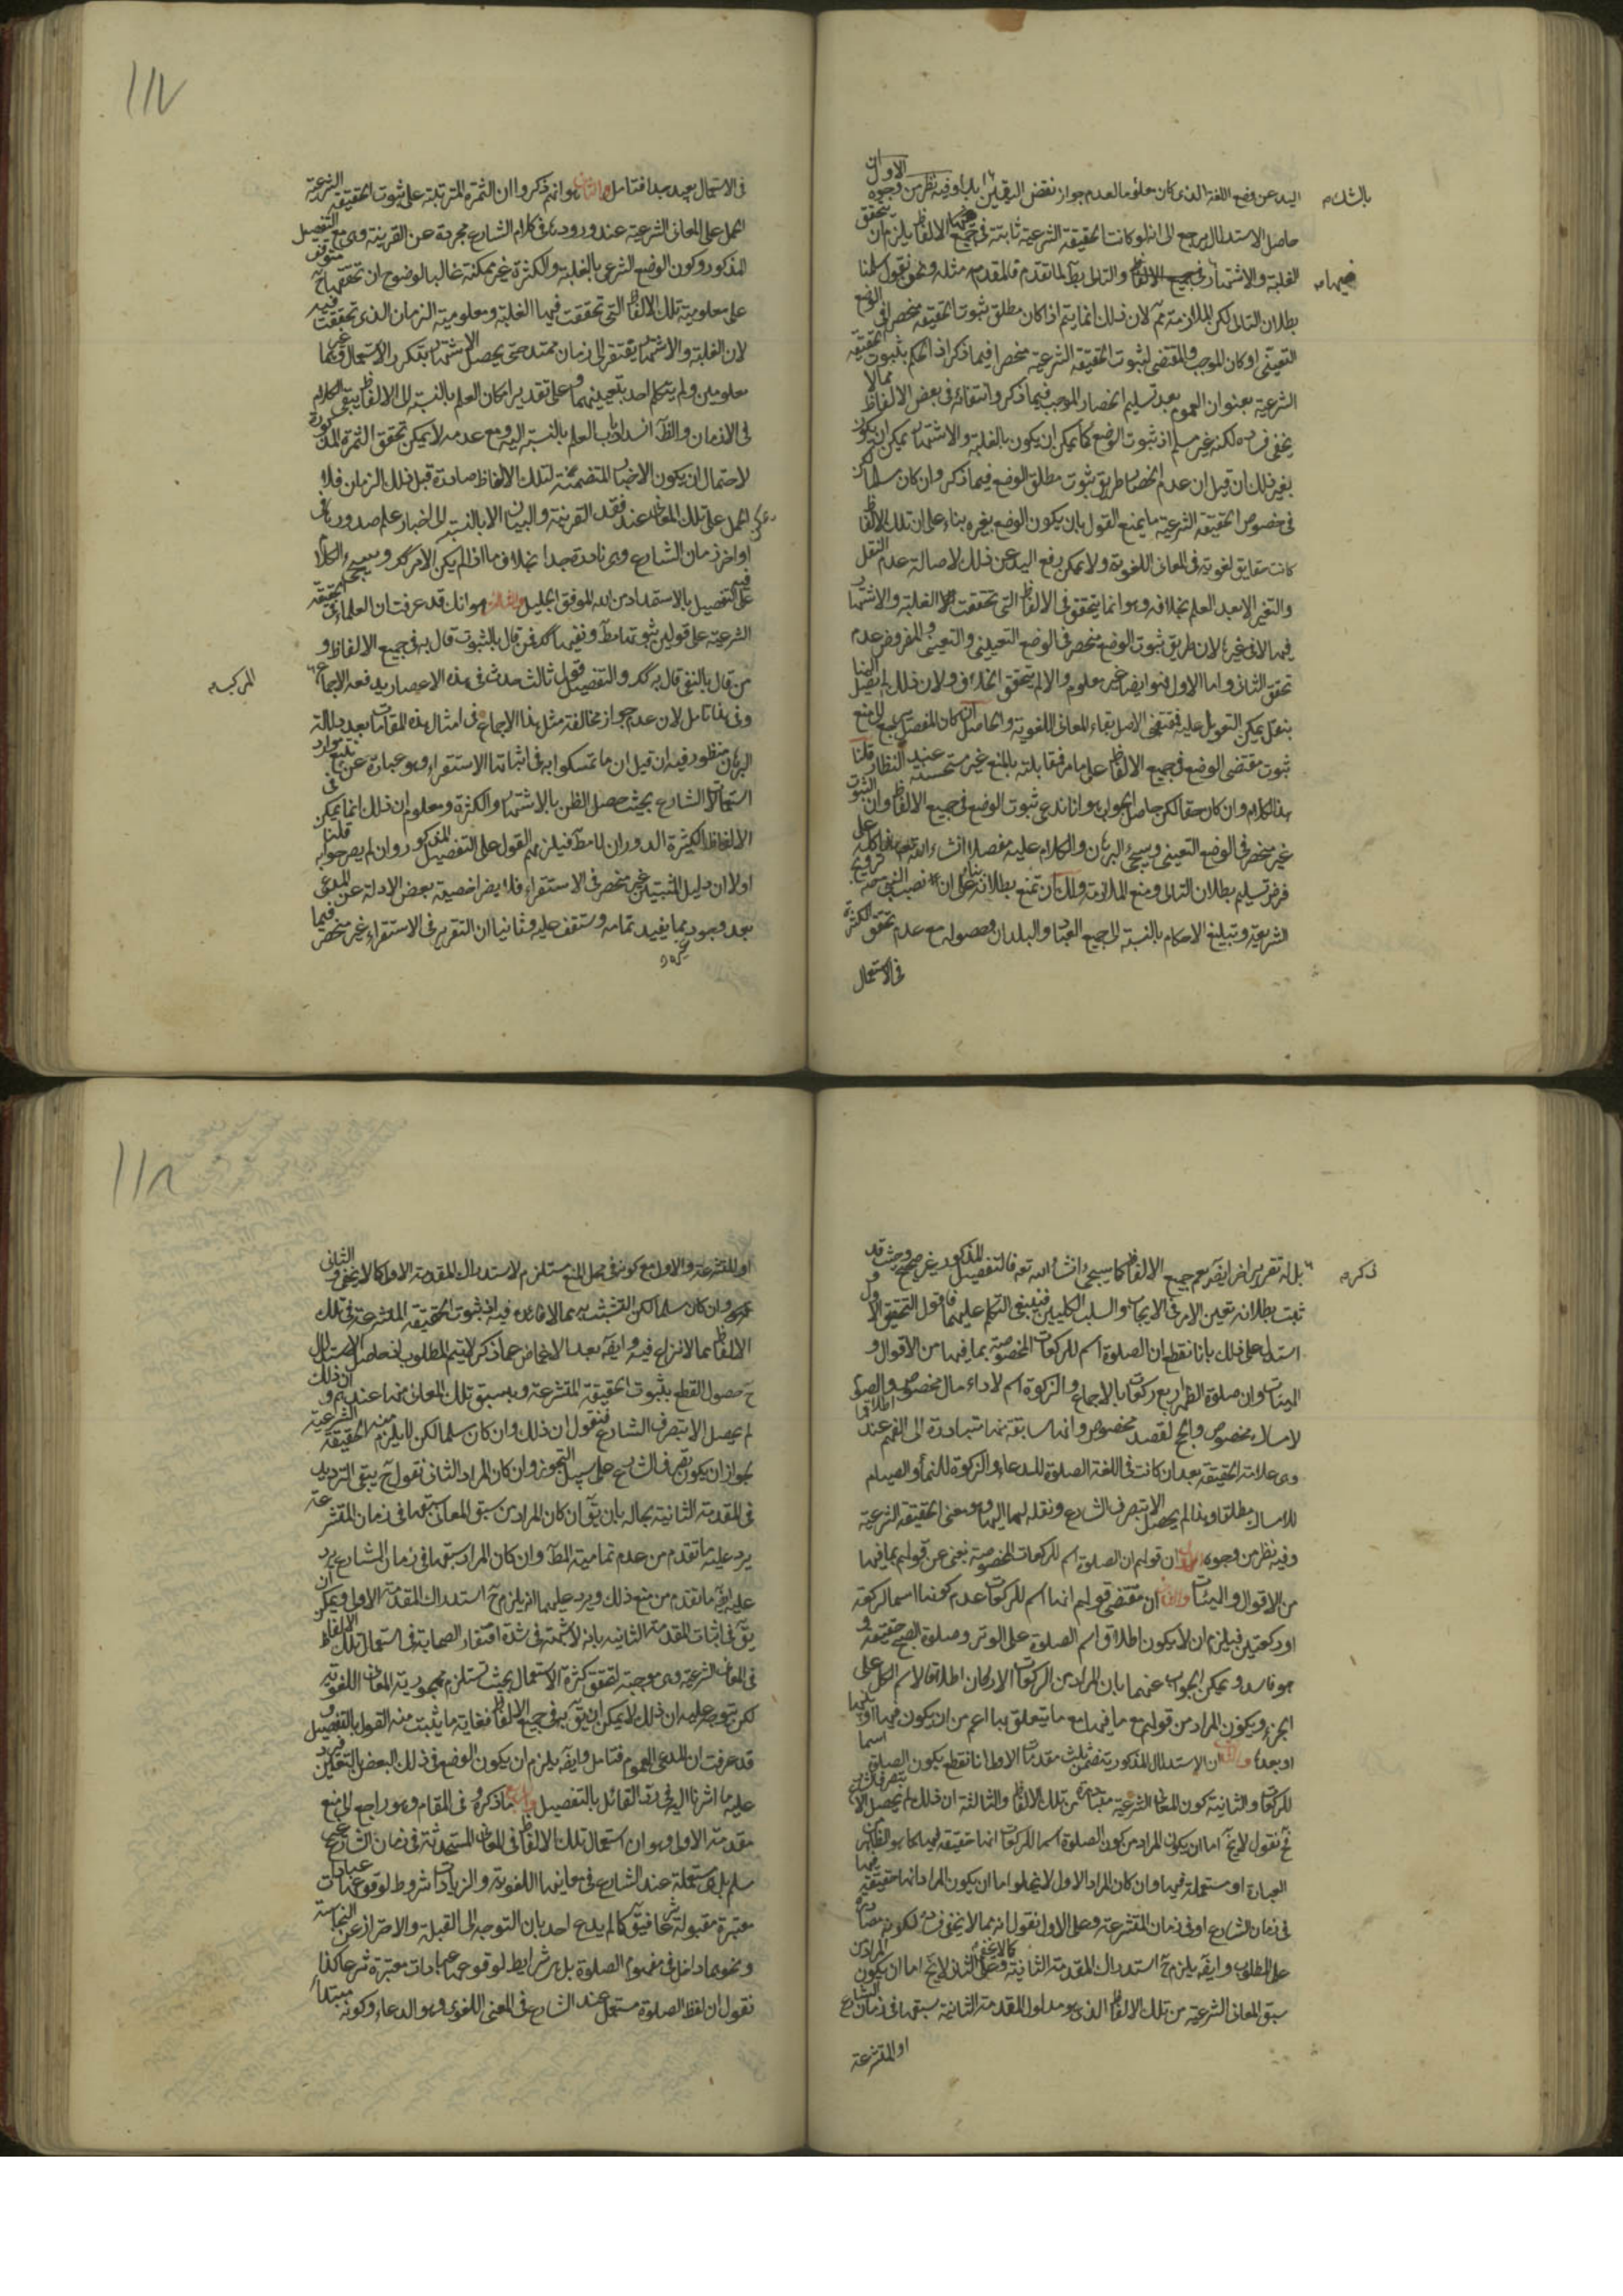 اليد عن وضع اللغة الذى كان معلوما لعدم جواز نقض اليقين ابدا وفيه نظر من وجوه الاول ان
بالشك م
حاصل الاستدلال يرجع الى انه لو كانت الحقيقة الشرعية ثابتة فى جميع الالفاظ يلزم ان يتحقق
الغلبة والاشتهار فى جميع الالفاظ والتالى بط لما تقدم فالمقدم مثله ونحن نقول سلمنا
بطلان التالى لكن الملازمة مم لان ذلك انما يتم اذا كان مطلق ثبوت الحقيقة منحصرا فى الوضع
التعينى او كان الموجب والمقتضى لثبوت الحقيقة الشرعية منحصرا فيما ذكر اذ الحكم بثبوت الحقيقة
الشرعية بعنوان العموم بعد تسليم انحصار الموجب فيما ذكر وانتفائه فى بعض الالفاظ مما لا
يخفى فساده لكنه غير مسلم اذ ثبوت الوضع كما يمكن ان يكون بالغلبة والاشتهار يمكن ان يكون
بغير ذلك ان قيل ان عدم انحصار طريق ثبوت مطلق الوضع فيما ذكر وان كان مسلما لكن
فى خصوص الحقيقة الشرعية ما يمنع القول بان يكون الوضع بغيره بناء على ان تلك الالفاظ
كانت حقايق لغوية فى المعانى اللغوية ولا يمكن رفع اليد عن ذلك لاصالة عدم النقل
والتغير الا بعد العلم بخلافه وهو انما يتحقق فى الالفاظ التى تحققت الغلبة والاشتهار
فيها لا فى غيرها لان طريق ثبوت الوضع منحصر فى الوضع التعيينى والتعينى والمفروض عدم
تحقق الثانى واما الاول فهو ايضا غير معلوم والا لم يتحقق الخلاف ولان ذلك لم يصل الينا
بنقل يمكن التعويل عليه فمقتضى الاصل بقاء المعانى اللغوية والحاصل ان كان المفصل يرجع الى منع
ثبوت مقتضى الوضع فى جميع الالفاظ على ما مر فمقابلته بالمنع غير مستحسنة عند النظار قلنا
هذا الكلام وان كان حقا لكن حاصل الجواب هو انا ندعى ثبوت الوضع فى جميع الالفاظ وان الثبوت
غير منحصر فى الوضع التعينى وسيجئ البرهان والكلام عليه مفصلا انشاء الله تعالى هذا كله على
فرض تسليم بطلان التالى ومنع الملازمة ولك ان تمنع بطلانه بناء على ان نصب النبى ص لترويج
الشريعة وتبليغ الاحكام بالنسبة الى جميع العباد والبلدان وحصوله مع عدم تحقق الكثرة
فى الاستعمال
١١٧
فى الاستعمال بعيد جدا فتامل والثانى هو انهم ذكروا ان الثمرة المترتبة على ثبوت الحقيقة الشرعية
الحمل على المعانى الشرعية عند ورودها فى كلام الشارع مجردة عن القرينة وهى مع التفصيل
المذكور وكون الوضع الشرعى بالغلبة والكثرة غير ممكنة غالبا لوضوح ان تحققها ح متوقف
على معلومية تلك الالفاظ التى تحققت فيها الغلبة ومعلومية الزمان الذى تحققت فيه
لان الغلبة والاشتهار يفتقر الى زمان ممتد حتى يحصل الاشتهار بتكرر الاستعمال وهما غير
معلومين ولم يتكلم احد بتعيينهما وعلى تقدير امكان العلم بالنسبة الى الالفاظ يبقى الكلام
فى الازمان والظ انسداد باب العلم بالنسبة اليه ومع عدمه لا يمكن تحقق الثمرة المذكورة
لاحتمال ان يكون الاخبار المتضمنة لتلك الالفاظ صادرة قبل ذلك الزمان فلا
يمكن الحمل على تلك المعانى عند فقد القرينة والبيان الا بالنسبة الى اخبار علم صدورها فى
اواخر زمان الشارع وهى نادرة جدا بخلاف ما اذا لم يكن الامر كك وسيجئ الكلام
على التفصيل بالاستمداد من الله الموفق الجليل والثالث هو انك قد عرفت ان العلماء فى الحقيقة
الشرعية على قولين ثبوتها مط ونفيها كك فمن قال بالثبوت قال به فى جميع الالفاظ و
من قال بالنفى قال به كك والتفصيل قول ثالث حدث فى هذه الاعصار يدفعه الاجماع
المركب م
وفى هذا تامل لان عدم جواز مخالفة مثل هذا الاجماع فى امثال هذه المقامات بعد دلالة
البرهان منظور فيه ان قيل ان ما تمسكوا به فى اثباتها الاستقراء وهو عبارة عن تتبع موارد
استعمالات الشارع بحيث حصل الظن بالاشتهار والكثرة ومعلوم ان ذلك انما يمكن فى
الالفاظ الكثيرة الدوران لا مط فيلزمهم القول على التفصيل المذكور وان لم يصرحوا به قلنا
اولا ان دليل المثبتين غير منحصر فى الاستقراء فلا يضر اخصية بعض الادلة عن المدعى
بعد وجود ما يفيد تمامه وستقف عليه وثانيا ان التقرير فى الاستقراء غير منحصر فيما
ذكره
ذكر م
بل له تقرير اخر ايضا يعم جميع الالفاظ كما سيجئ انشاء الله تعه فالتفصيل المذكور غير صحيح وحيث قد
ثبت بطلانه تعين الامر فى الايجاب والسلب الكليين فينبغى التكلم عليهما فاقول التحقيق الاول و
استدل على ذلك بانا نقطع ان الصلوة اسم للركعات المخصوصة بما فيها من الاقوال و
الهيئات وان صلوة الظهر اربع ركعات بالاجماع والزكوة اسم لاداء مال مخصوص والصوم
لامساك مخصوص والحج لقصد مخصوص وانها سابقة منها متبادرة الى الفهم عند اطلاقها
وهى علامة الحقيقة بعد ان كانت فى اللغة الصلوة للدعاء والزكوة للنماء والصيام
للامساك مطلقا وهذا لم يحصل الا بتصرف الشارع ونقله لها اليها وهو معنى الحقيقة الشرعية
وفيه نظر من وجوه الاول ان قولهم ان الصلوة اسم للركعات المخصوصة يغنى عن قولهم بما فيها
من الاقوال والهيئات والثانى ان مقتضى قولهم انها اسم للركعات عدم كونها اسما لركعة
او ركعتين فيلزم ان لا يكون اطلاق اسم الصلوة على الوتر وصلوة الصبح حقيقة و
هو فاسد ويمكن الجواب عنهما بان المراد من الركعات الاركان اطلاقا لاسم الكل على
الجزء ويكون المراد من قولهم مع ما فيها مع ما يتعلق بها اعم من ان يكون فيها او قبلها
او بعدها والثالث ان الاستدلال المذكور يتضمن ثلث مقدمات الاولى انا نقطع بكون الصلوة اسما
للركعات والثانية كون المعانى الشرعية متبادرة من تلك الالفاظ والثالثة ان ذلك لم يحصل الا بتصرف الشرع
فح نقول لا يخ اما ان يكون المراد من كون الصلوة اسما للركعات انها حقيقة فيها كما هو الظاهر من
العبارة او مستعملة فيها وان كان المراد الاول لا يخلو اما ان يكون المراد انها حقيقة فيها
فى زمان الشارع او فى زمان المتشرعة وعلى الاول نقول انه مما لا يخفى فساده لكونه مصادرة
على المطلوب وايضا يلزم ح استدراك المقدمة الثانية كما لا يخفى وعلى الثانى لا يخ اما ان يكون المراد من
سبق المعانى الشرعية من تلك الالفاظ الذى هو مدلول المقدمة الثانية سبقها فى زمان الشارع
او المتشرعة
١١٨
او المتشرعة والاول مع كونه فى محل المنع مستلزم لاستدراك المقدمة الاولى كما لا يخفى والثانى
وان كان مسلما لكن التشبث به مما لا فائدة فيه اذ ثبوت الحقيقة المتشرعة فى تلك
الالفاظ مما لا نزاع فيه وايضا بعد الاغماض عما ذكر لا يتم المطلوب اذ حاصل الاستدلال
ح حصول القطع بثبوت الحقيقة المتشرعة وبسبق تلك المعانى منها عندهم وان ذلك
لم يحصل الا بتصرف الشارع فنقول ان ذلك وان كان مسلما لكن لا يلزم منه الحقيقة الشرعية
لجواز ان يكون تصرف الشارع على سبيل التجوز وان كان المراد الثانى نقول ح يبقى الترديد
فى المقدمة الثانية بحاله بان يق ان كان المراد من سبق المعانى سبقها فى زمان المتشرعة
يرد عليه ما تقدم من عدم تمامية المط وان كان المراد سبقها فى زمان الشارع يرد
عليه ايضا ما تقدم من منع ذلك ويرد عليهما انه يلزم ح استدراك المقدمة الاولى ويمكن ان
يق فى اثبات المقدمة الثانية بانه لا شبهة فى شدة افتقار الصحابة فى استعمال تلك الالفاظ
فى المعانى الشرعية وهى موجبة لتحقق كثرة الاستعمال بحيث تستلزم مهجورية المعانى اللغوية
لكن يتوجه عليه ان ذلك لا يمكن ان يق به فى جميع الالفاظ فغاية ما يثبت منه القول بالتفصيل و
قد عرفت ان المدعى العموم فتامل وايضا يلزم ان يكون الوضع فى ذلك البعض بالتعين فيرد
عليه ما اشرنا اليه فى رد القائل بالتفصيل والرابع ما ذكروه فى المقام وهو راجع الى منع
مقدمة الاولى وهو ان استعمال تلك الالفاظ فى المعانى المستحدثة فى زمان الشارع غير
مسلم بل هى مستعملة عند الشارع فى معانيها اللغوية والزيادات شروط لوقوعها عبادات
معتبرة مقبولة شرعا فيق كما لم يدع احد بان التوجه الى القبلة والاحتراز عن النجاسة
ونحوهما داخل فى مفهوم الصلوة بل هى شرايط لوقوعها عبادات معتبرة شرعا كذا
نقول ان لفظ الصلوة مستعمل عند الشارع فى المعنى اللغوى وهو الدعاء وكونه مبتدأ